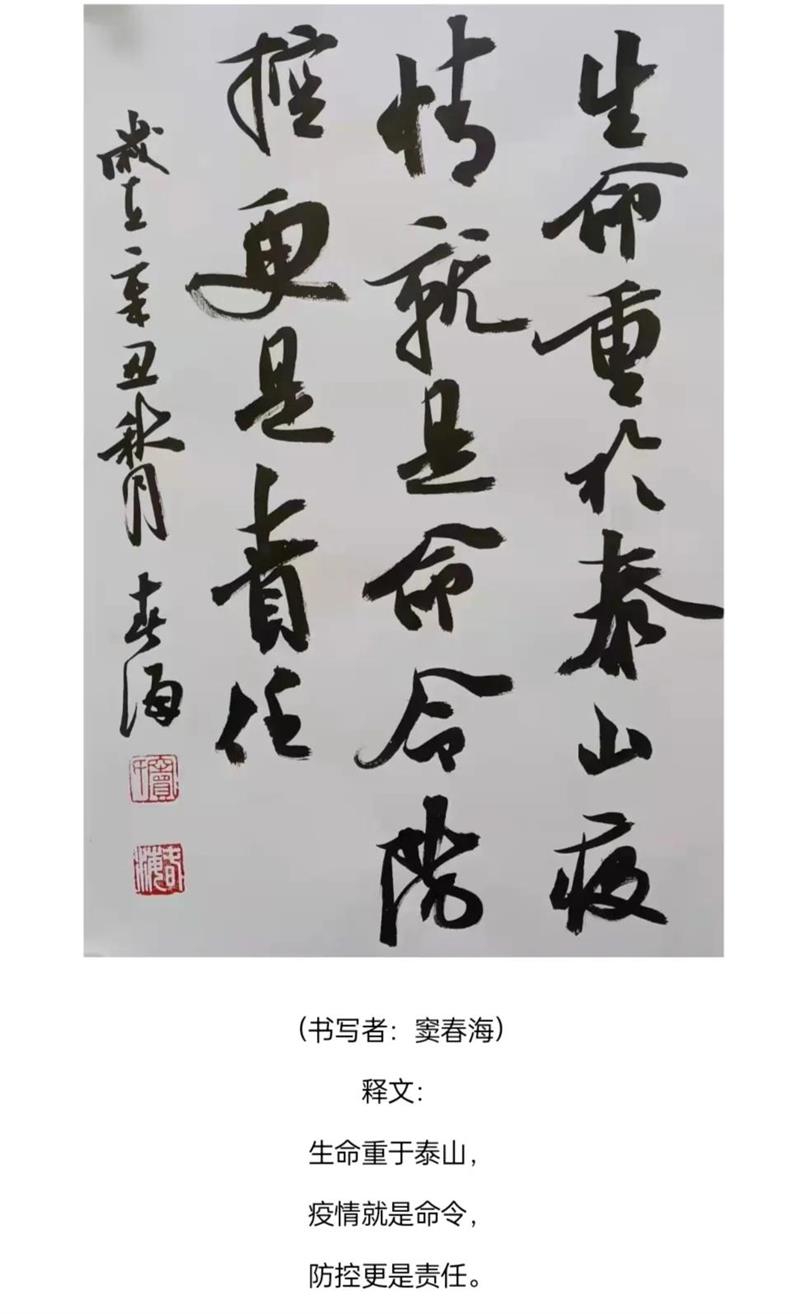 生命重於泰山疫
情就是命令防
控更是責任
歲在辛丑秋月 春海
春海
（书写者：窦春海）
释文：
生命重于泰山，
疫情就是命令，
防控更是责任。